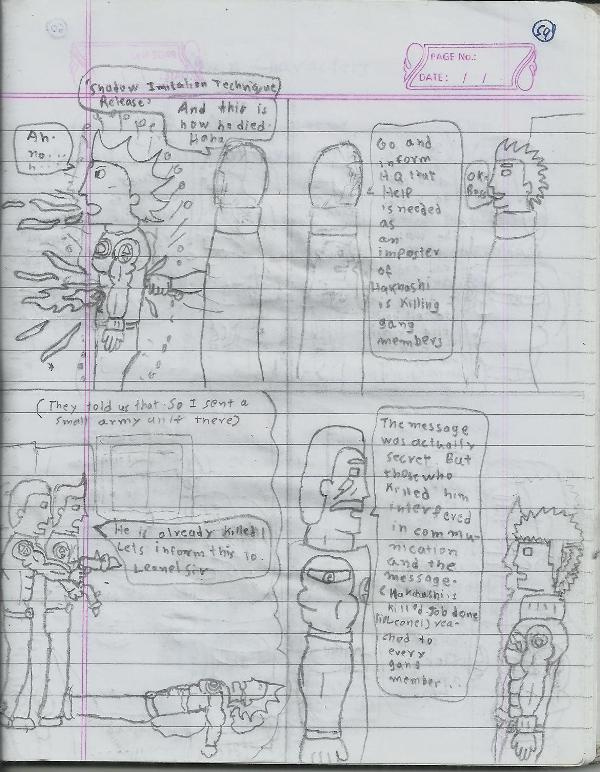 59
PAGE No.:
DATE: / /
"Shadow Imitation Technique
Release"
And this is
how he died.
Haha
Ah.
no...
h...
Go and
inform
H.Q that
Help
is needed
as
an
imposter
of
Hakhashi
is killing
gang
members
OK.
Boss
(They told us that. So I sent a
small army unit there)
He is already killed!
Lets inform this to
Leonel Sir
The message
was actually
secret. But
those who
killed him
interfered
in commu-
nication
and the
message.
(Hakhashi is
killed. Job done
Sir Leonel) rea-
ched to
every
gang
member...